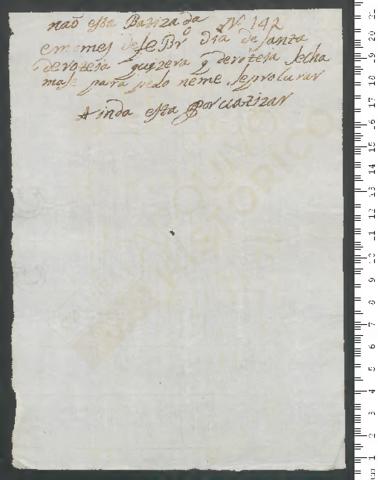 não esta Batizado Nº 142
em o mes de feBrº dia de Santa
deroteia quizera q deroteia secha
mase para pedo neme se procurar
Ainda esta por vatizar